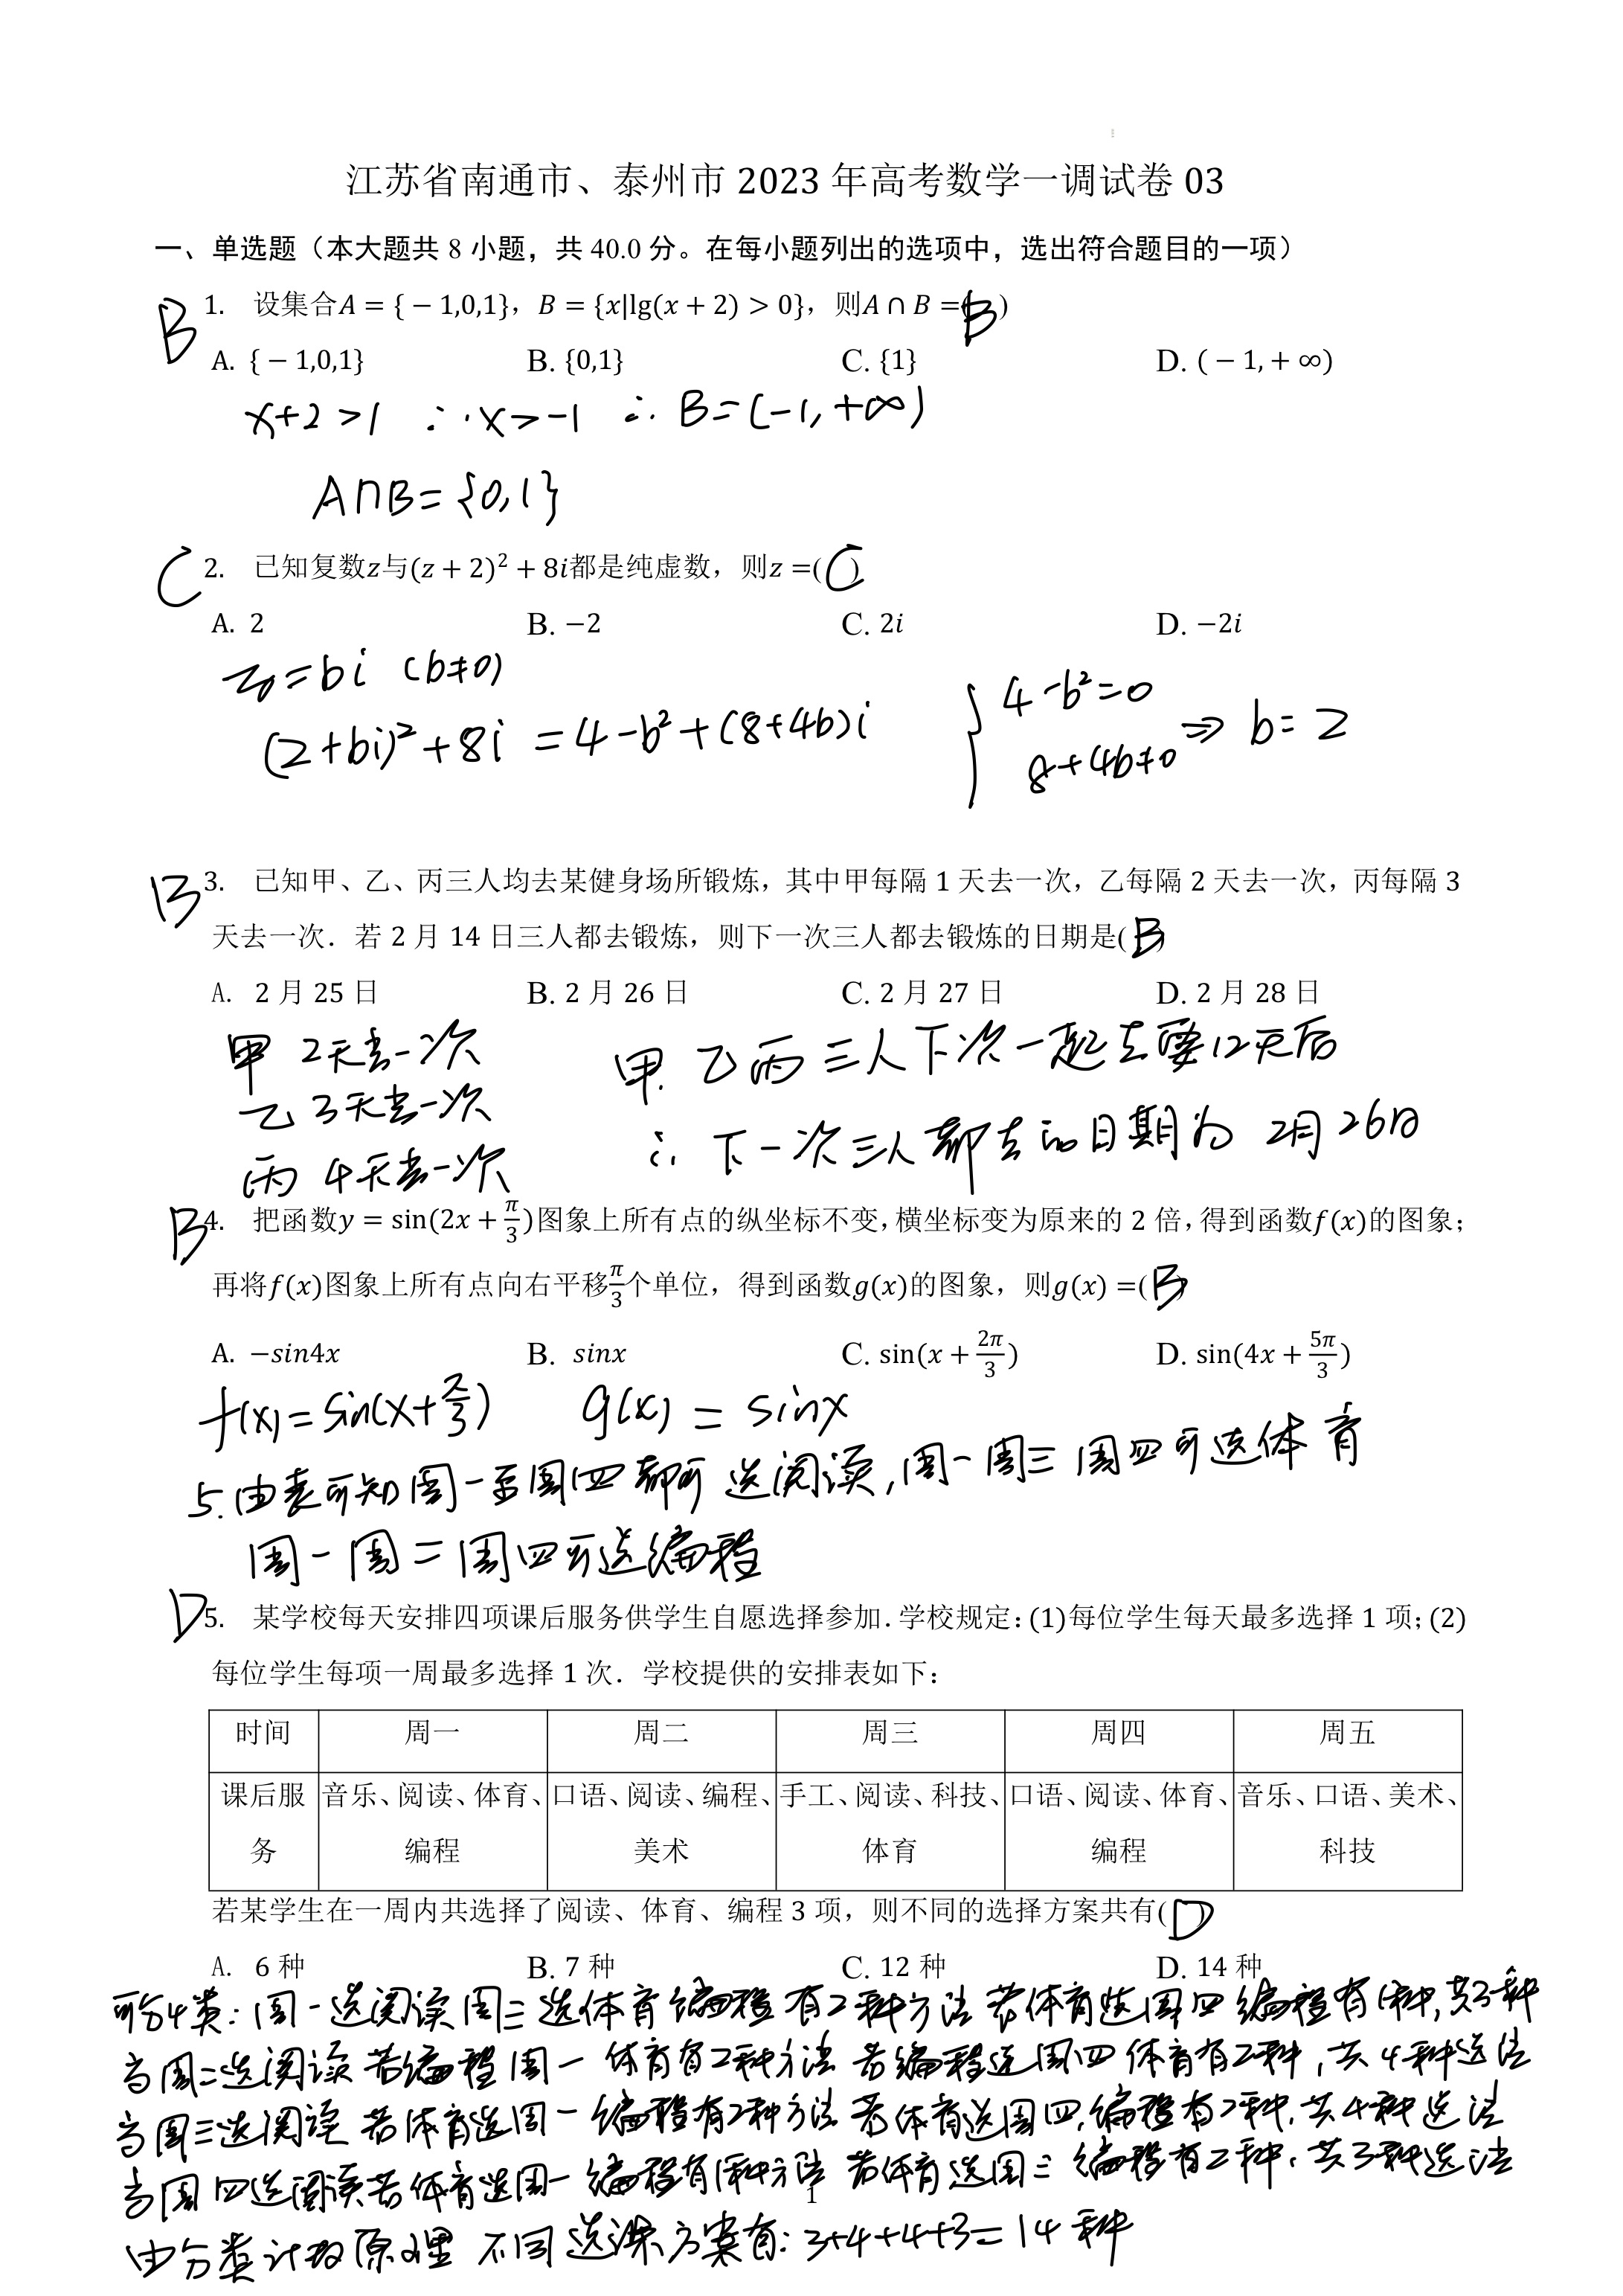 江苏省南通市、泰州市 2023 年高考数学一调试卷 03
一、单选题（本大题共 8 小题，共 40.0 分。在每小题列出的选项中，选出符合题目的一项）
B 1. 设集合A = { − 1,0,1}，B = {x|lg(x + 2) > 0}，则A ∩ B =( B )
A. { − 1,0,1} B. {0,1} C. {1} D. ( − 1, + ∞)
x+2>1 ∴x>-1 ∴ B=(-1,+∞)
A∩B={0,1}
C 2. 已知复数z与(z + 2)² + 8i都是纯虚数，则z =( C )
A. 2 B. −2 C. 2i D. −2i
z=bi (b≠0)
(2+bi)²+8i =4-b²+(8+4b)i { 4-b²=0 8+4b≠0 ⇒ b=2
B 3. 已知甲、乙、丙三人均去某健身场所锻炼，其中甲每隔 1 天去一次，乙每隔 2 天去一次，丙每隔 3
天去一次．若 2 月 14 日三人都去锻炼，则下一次三人都去锻炼的日期是( B )
A. 2 月 25 日 B. 2 月 26 日 C. 2 月 27 日 D. 2 月 28 日
甲 2天去一次 甲.乙丙三人下次一起去要12天后
乙 3天去一次 ∴ 下一次三人都去的日期为 2月26日
丙 4天去一次
B 4. 把函数y = sin(2x + π/3)图象上所有点的纵坐标不变，横坐标变为原来的 2 倍，得到函数f(x)的图象；
再将f(x)图象上所有点向右平移π/3个单位，得到函数g(x)的图象，则g(x) =( B )
A. −sin4x B. sinx C. sin(x + 2π/3) D. sin(4x + 5π/3)
f(x)=sin(x+π/3) g(x)=sinx
5.由表可知周一至周四都可选阅读,周一周三周四可选体育
周一周二周四可选编程
D 5. 某学校每天安排四项课后服务供学生自愿选择参加．学校规定：(1)每位学生每天最多选择 1 项；(2)
每位学生每项一周最多选择 1 次．学校提供的安排表如下：
时间 周一 周二 周三 周四 周五
课后服务 音乐、阅读、体育、编程 口语、阅读、编程、美术 手工、阅读、科技、体育 口语、阅读、体育、编程 音乐、口语、美术、科技
若某学生在一周内共选择了阅读、体育、编程 3 项，则不同的选择方案共有( D )
A. 6 种 B. 7 种 C. 12 种 D. 14 种
可分4类:周一选阅读周三选体育编程有2种方法若体育选周四编程有1种,共3种
当周二选阅读若编程周一体育有2种方法若编程选周四体育有2种,共4种选法
当周三选阅读若体育选周一编程有2种方法若体育选周四,编程有2种,共4种选法
当周四选阅读若体育选周一编程有1种方法若体育选周三编程有2种,共3种选法
1
由分类计数原理 不同选课方案有:3+4+4+3=14种